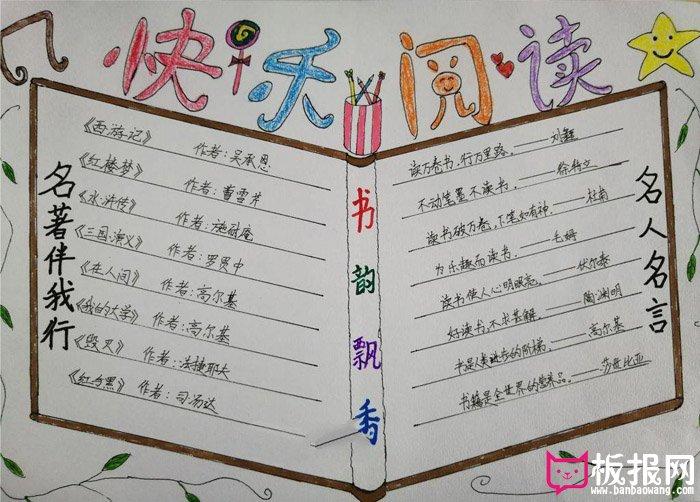 快乐阅读
名著伴我行
《西游记》 作者：吴承恩
《红楼梦》 作者：曹雪芹
《水浒传》 作者：施耐庵
《三国演义》 作者：罗贯中
《在人间》 作者：高尔基
《我的大学》 作者：高尔基
《毁灭》 作者：法捷耶夫
《红与黑》 作者：司汤达
书韵飘香
读万卷书，行万里路。——刘彝
不动笔墨不读书。——徐特立
读书破万卷，下笔如有神。——杜甫
为乐趣而读书。——毛姆
读书使人心明眼亮。——伏尔泰
好读书，不求甚解。——陶渊明
书是人类进步的阶梯。——高尔基
书籍是全世界的营养品。——莎士比亚
名人名言
板报网
www.banbaowang.com